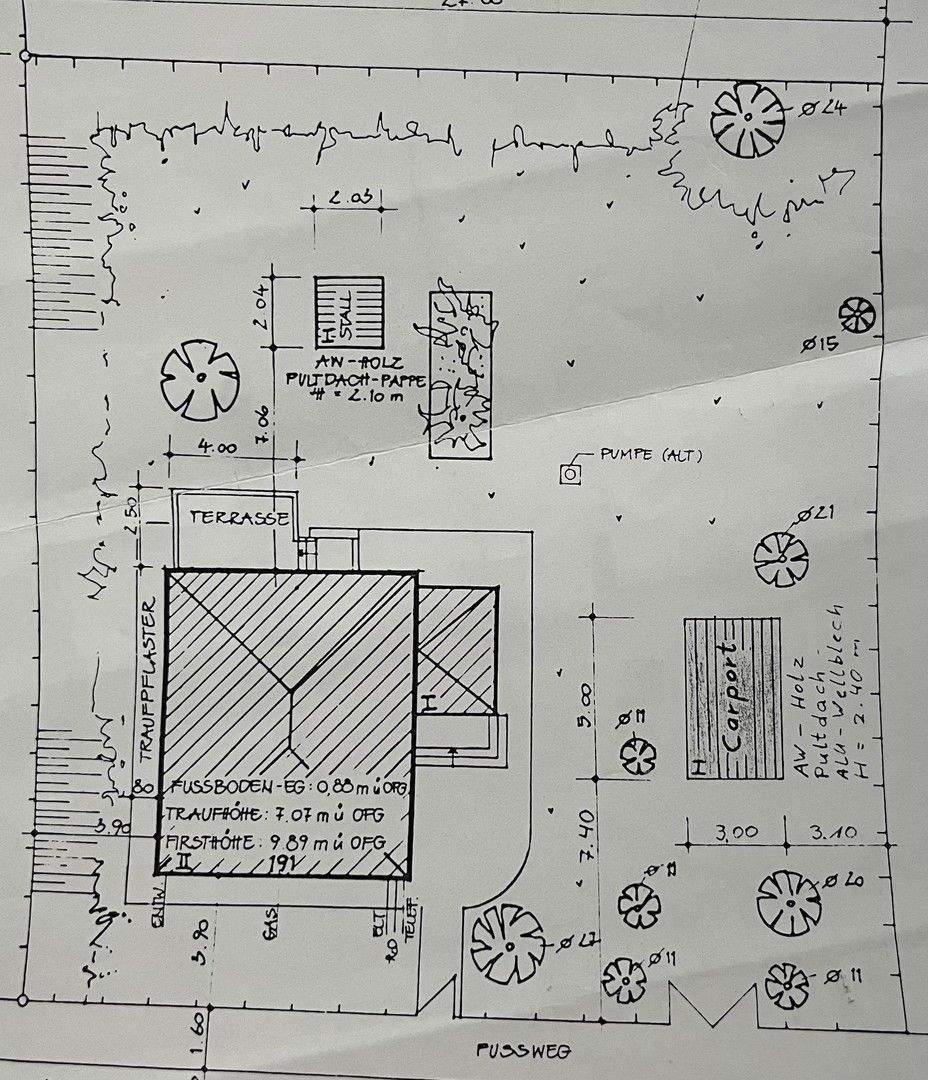 Ø24
2.03
2.04
STALL
H
AW-HOLZ
PULTDACH-PAPPE
H = 2.10 m
Ø15
7.06
4.00
PUMPE (ALT)
2.50
TERRASSE
Ø21
TRAUFPFLASTER
H
5.00
Carport
H
AW-Holz
Pultdach-
Alu-Wellblech
H = 2.40 m
80
FUSSBODEN-EG: 0,88 m ü OFG
3.90
TRAUFHÖHE: 7.07 m ü OFG
FIRSTHÖHE: 9.89 m ü OFG
II
191
7.40
3,00
3.10
ENTW.
GAS
ELT
RO
TELEF.
3.90
Ø20
Ø11
Ø11
1.60
FUSSWEG